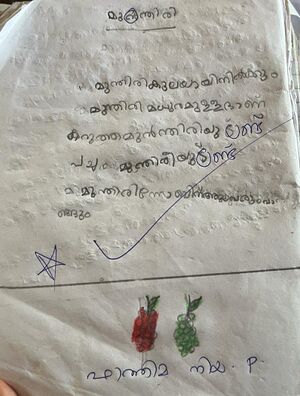 മുന്തിരി
മുന്തിരി കുലയായി നിൽക്കും
മുന്തിരി മധുരമുള്ളതാണ്
കറുത്തമുൻന്തിരിയു മുണ്ട്
പച്ച മുന്തിരിയുമുണ്ട്
മുന്തിരി
ഫാത്തിമ നിയ. P.